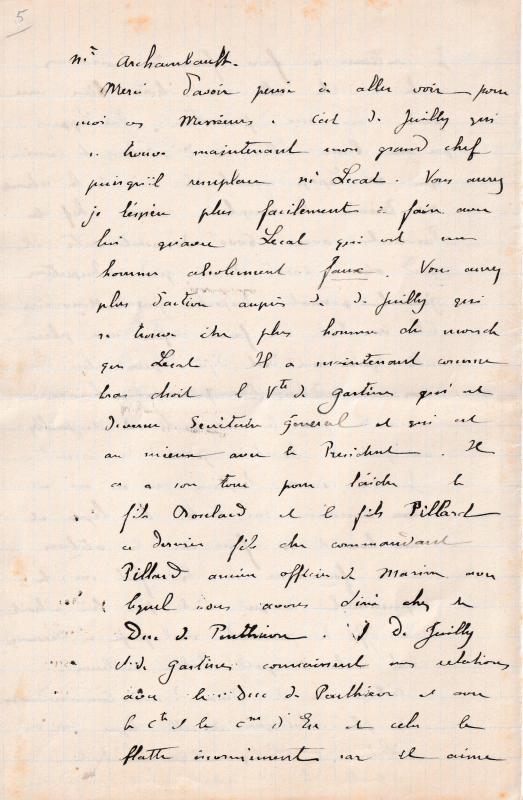 5
Mr Archambault.
Merci d'avoir pensé à aller voir pour
moi ces Messieurs. C'est de Juilly qui
se trouve maintenant mon grand chef
puisqu'il remplace Mr Lecat. Vous aurez
je l'espère plus facilement à faire avec
lui qu'avec Lecat qui est un
homme absolument faux. Vous aurez
plus d'action auprès de de Juilly qui
se trouve être plus homme du monde
que Lecat. Il a maintenant comme
bras droit le Vte de Gastines qui est
devenu Secrétaire Général et qui est
au mieux avec le Président. Il
a à son tour pour l'aider le
fils et le fils Pillard
ce dernier fils du commandant
Pillard ancien officier de Marine avec
lequel nous avons diné chez le
Duc de Penthièvre. de Juilly
et de Gastines connaissent nos relations
avec le Duc de Penthièvre et avec
le Cte et la Csse d'Eu et cela le
flatte énormément car il aime